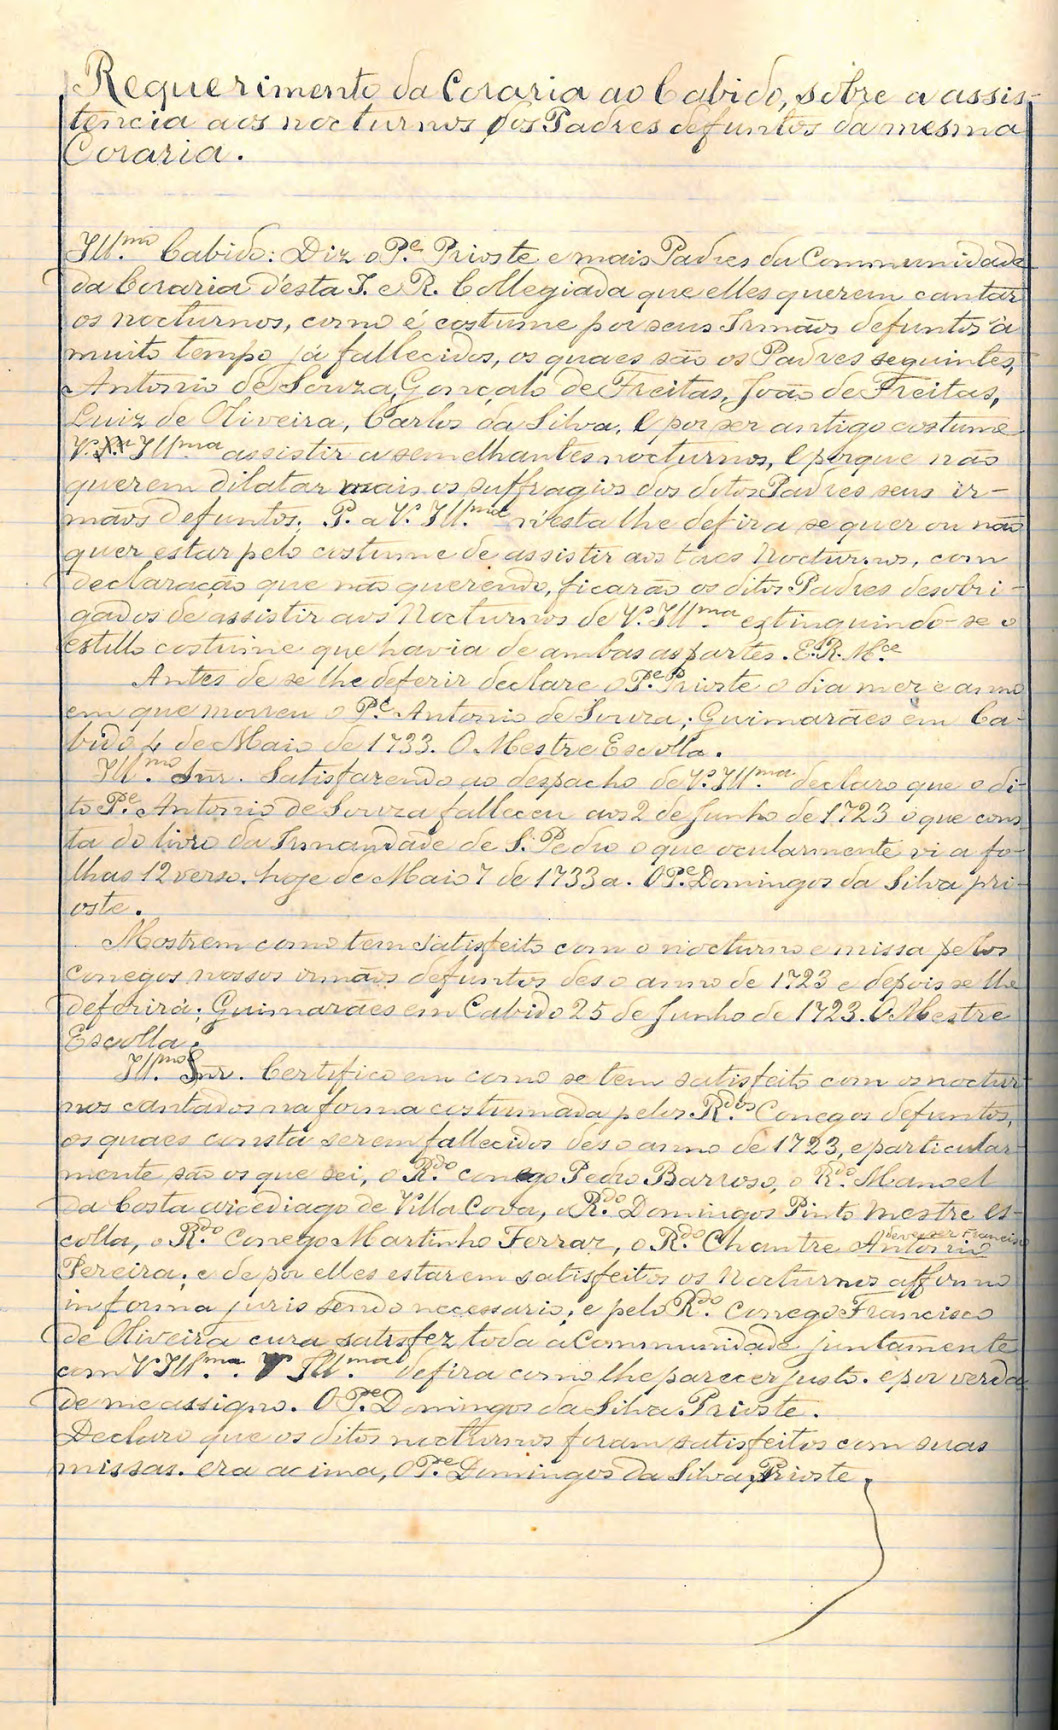 Requerimento da Coraria ao Cabido, sobre a assis-
tencia aos nocturnos dos Padres defuntos da mesma
Coraria.
Ill.mo Cabido: Diz o P.e Prioste e mais Padres da Communidade
da Coraria d'esta I. e R. Collegiada que elles querem cantar
os nocturnos, como é costume por seus Irmãos defuntos à
muito tempo já fallecidos, os quaes são os Padres seguintes,
Antonio de Souza, Gonçalo de Freitas, João de Freitas,
Luiz de Oliveira, Carlos da Silva. E por ser antigo costume
V. Ill.ma assistir a semelhantes nocturnos, e porque não
querem dilatar mais os suffragios dos ditos Padres seus ir-
mãos defuntos; P. a V. Ill.ma n'esta lhe defira se quer ou não
quer estar pelo costume de assistir aos taes Nocturnos, com
declaração que não querendo, ficarão os ditos Padres desobri-
gados de assistir aos Nocturnos de V. Ill.ma extinguindo-se o
estillo costume que havia de ambas as partes. E. R. M.ce
Antes de se lhe deferir declare o P.e Prioste o dia mez e anno
em que morreu o P.e Antonio de Souza; Guimarães em Ca-
bido 4 de Maio de 1733. O Mestre Escolla.
Ill.mo Snr. Satisfazendo ao despacho de V. Ill.ma declaro que o di-
to P.e Antonio de Souza falleceu aos 2 de Junho de 1723 o que cons-
ta do livro da Irmandade de S. Pedro o que ocularmente vi a fo-
lhas 12 verso. hoje de Maio 7 de 1733 a. O P.e Domingos da Silva pri-
oste.
Mostrem como tem satisfeito com o nocturno e missa pelos
conegos nossos irmãos defuntos des o anno de 1723 e depois se lhe
deferirá; Guimarães em Cabido 25 de Junho de 1723. O Mestre
Escolla.
Ill.mo Snr. Certifico em como se tem satisfeito com os noctur-
nos cantados na forma costumada pelos R.dos Conegos defuntos,
os quaes consta serem fallecidos des o anno de 1723, e particular-
mente são os que sei, o R.do conego Pedro Barroso, o R.do Manoel
da Costa arcediago de Villa Cova, o R.do Domingos Pinto mestre es-
colla, o R.do Conego Martinho Ferraz, o R.do Chantre Antonio
deve ser Francisco
Pereira; e de por elles estarem satisfeitos os Nocturnos affirmo
in forma juris sendo necessario; e pelo R.do Conego Francisco
de Oliveira cura satisfez toda a Communidade juntamente
com V Ill.ma. V Ill.ma defira como lhe parecer justo. e por verda-
de me assigno. O P.e Domingos da Silva. Prioste.
Declaro que os ditos nocturnos foram satisfeitos com suas
missas. era acima, O P.e Domingos da Silva, Prioste.